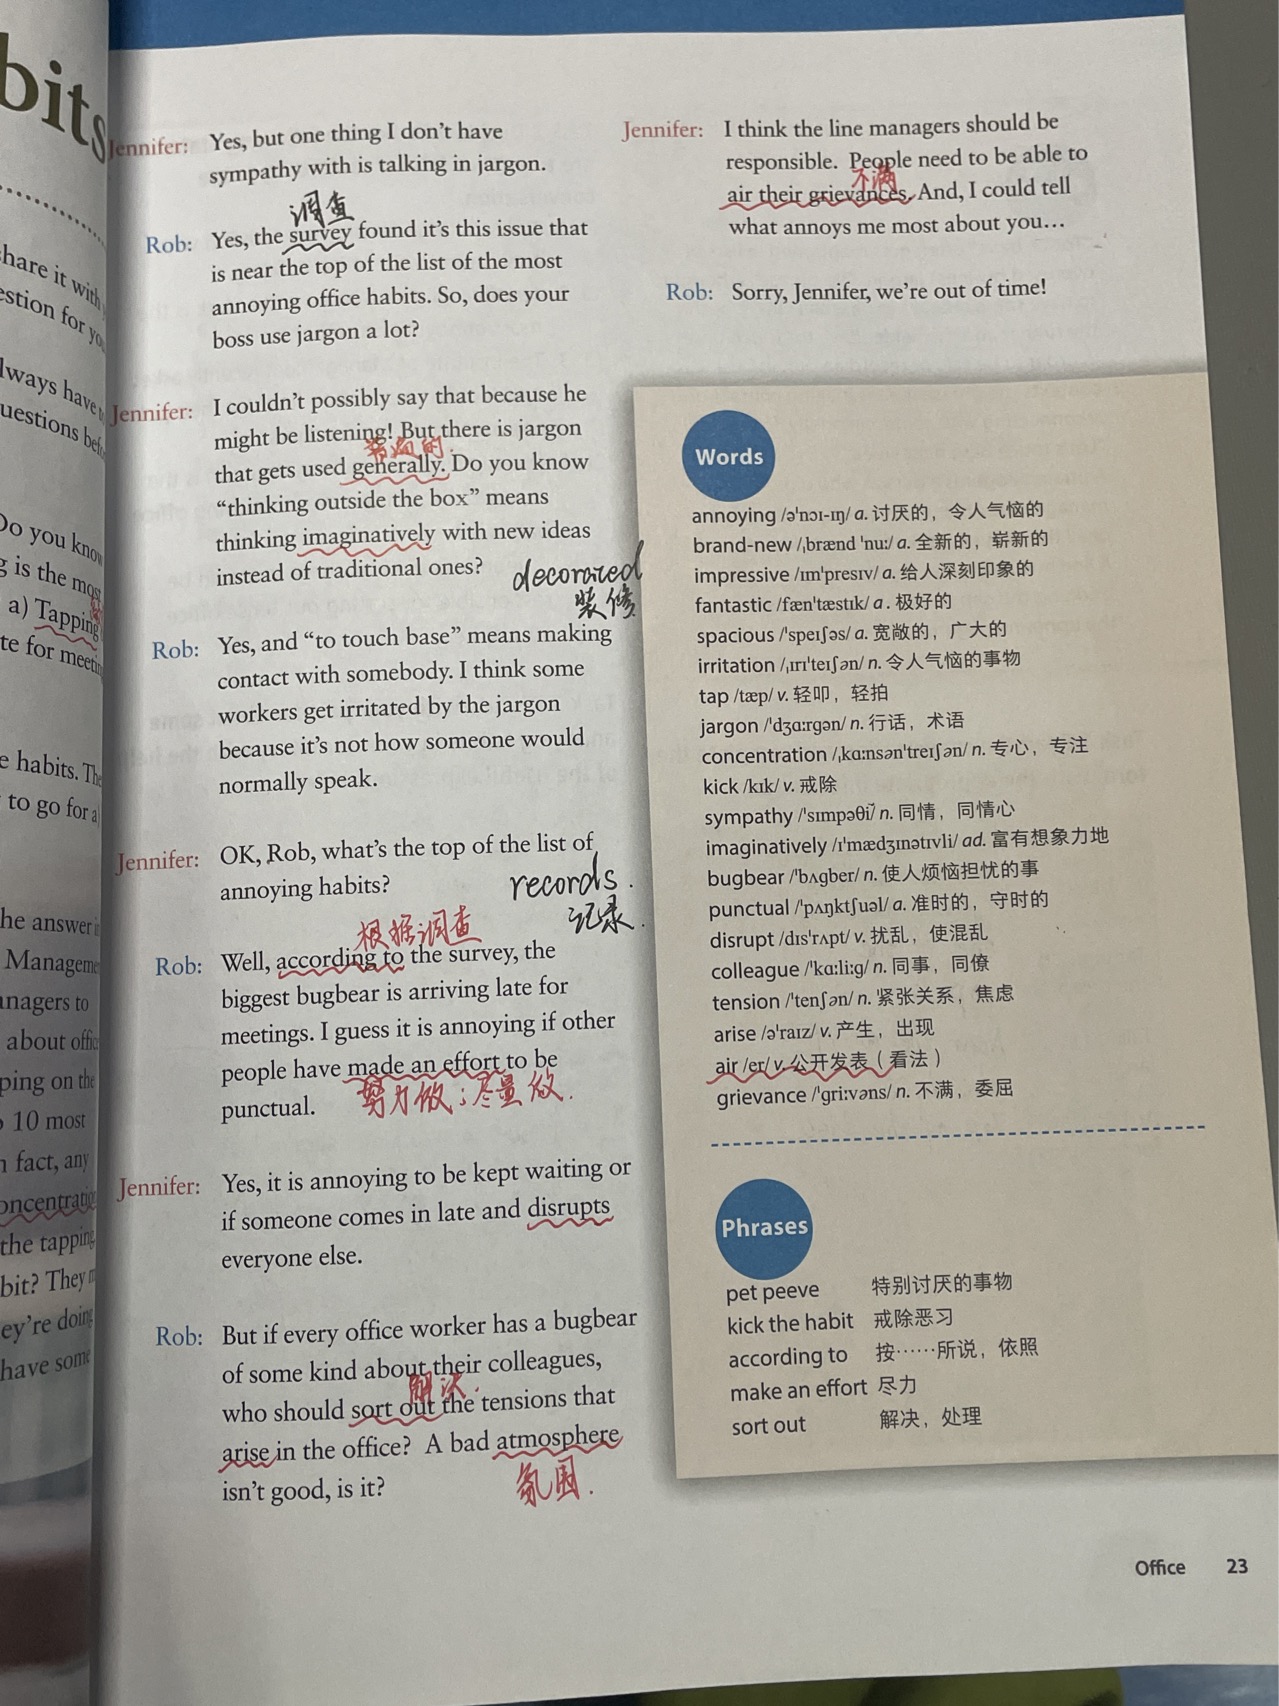 bits
share it with
estion for you
lways have to
uestions bef
Do you know
g is the most
a) Tapping
te for meetin
e habits. The
to go for a
he answer i
Manageme
anagers to
about offic
ping on the
10 most
n fact, any
oncentratio
the tapping
bit? They m
ey're doing
have some
Jennifer: Yes, but one thing I don't have
sympathy with is talking in jargon.
调查
Rob: Yes, the survey found it's this issue that
is near the top of the list of the most
annoying office habits. So, does your
boss use jargon a lot?
Jennifer: I couldn't possibly say that because he
might be listening! But there is jargon
普遍的.
that gets used generally. Do you know
"thinking outside the box" means
thinking imaginatively with new ideas
instead of traditional ones?
decorated
装修
Rob: Yes, and "to touch base" means making
contact with somebody. I think some
workers get irritated by the jargon
because it's not how someone would
normally speak.
Jennifer: OK, Rob, what's the top of the list of
annoying habits?
records.
记录.
根据调查
Rob: Well, according to the survey, the
biggest bugbear is arriving late for
meetings. I guess it is annoying if other
people have made an effort to be
punctual.
努力做；尽量做.
Jennifer: Yes, it is annoying to be kept waiting or
if someone comes in late and disrupts
everyone else.
Rob: But if every office worker has a bugbear
of some kind about their colleagues,
解决.
who should sort out the tensions that
arise in the office? A bad atmosphere
isn't good, is it?
氛围.
Jennifer: I think the line managers should be
responsible. People need to be able to
不满
air their grievances. And, I could tell
what annoys me most about you…
Rob: Sorry, Jennifer, we're out of time!
Words
annoying /ə'nɔɪ-ɪŋ/ a. 讨厌的，令人气恼的
brand-new /ˌbrænd 'nu:/ a. 全新的，崭新的
impressive /ɪm'presɪv/ a. 给人深刻印象的
fantastic /fæn'tæstɪk/ a. 极好的
spacious /'speɪʃəs/ a. 宽敞的，广大的
irritation /ˌɪrɪ'teɪʃən/ n. 令人气恼的事物
tap /tæp/ v. 轻叩，轻拍
jargon /'dʒɑ:rgən/ n. 行话，术语
concentration /ˌkɑ:nsən'treɪʃən/ n. 专心，专注
kick /kɪk/ v. 戒除
sympathy /'sɪmpəθi/ n. 同情，同情心
imaginatively /ɪ'mædʒɪnətɪvli/ ad. 富有想象力地
bugbear /'bʌgber/ n. 使人烦恼担忧的事
punctual /'pʌŋktʃuəl/ a. 准时的，守时的
disrupt /dɪs'rʌpt/ v. 扰乱，使混乱
colleague /'kɑ:li:g/ n. 同事，同僚
tension /'tenʃən/ n. 紧张关系，焦虑
arise /ə'raɪz/ v. 产生，出现
air /er/ v. 公开发表（看法）
grievance /'gri:vəns/ n. 不满，委屈
Phrases
pet peeve 特别讨厌的事物
kick the habit 戒除恶习
according to 按……所说，依照
make an effort 尽力
sort out 解决，处理
Office 23